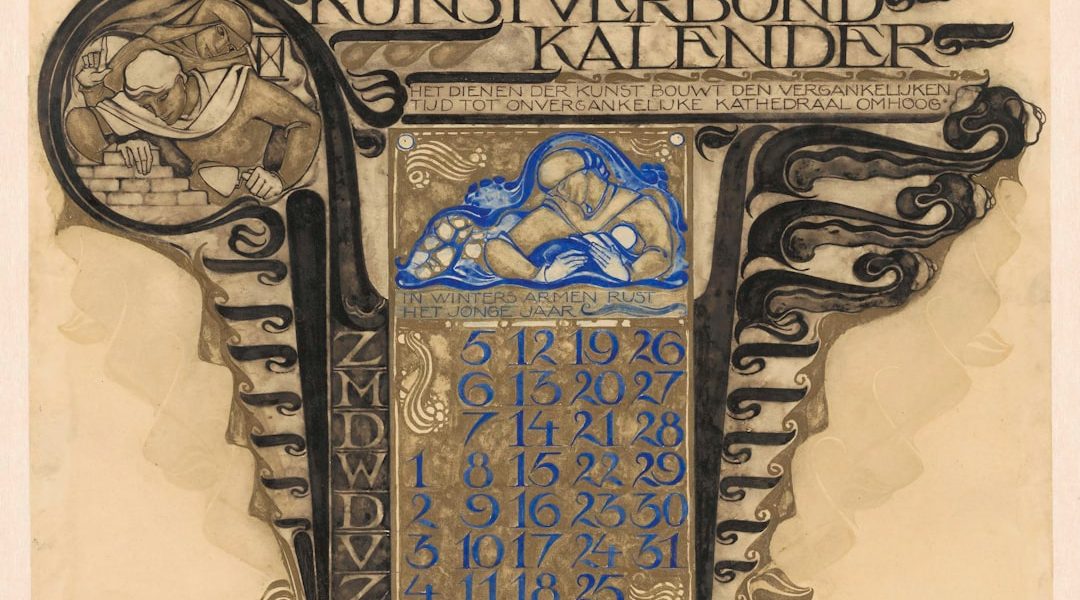 KUNSTVERBOND
KALENDER
HET DIENEN DER KUNST BOUWT DEN VERGANKELIJKEN
TIJD TOT ONVERGANKELIJKE KATHEDRAAL OMHOOG
IN WINTERS ARMEN RUST
HET JONGE JAAR
Z 5 12 19 26
M 6 13 20 27
D 7 14 21 28
W 1 8 15 22 29
D 2 9 16 23 30
V 3 10 17 24 31
Z 4 11 18 25